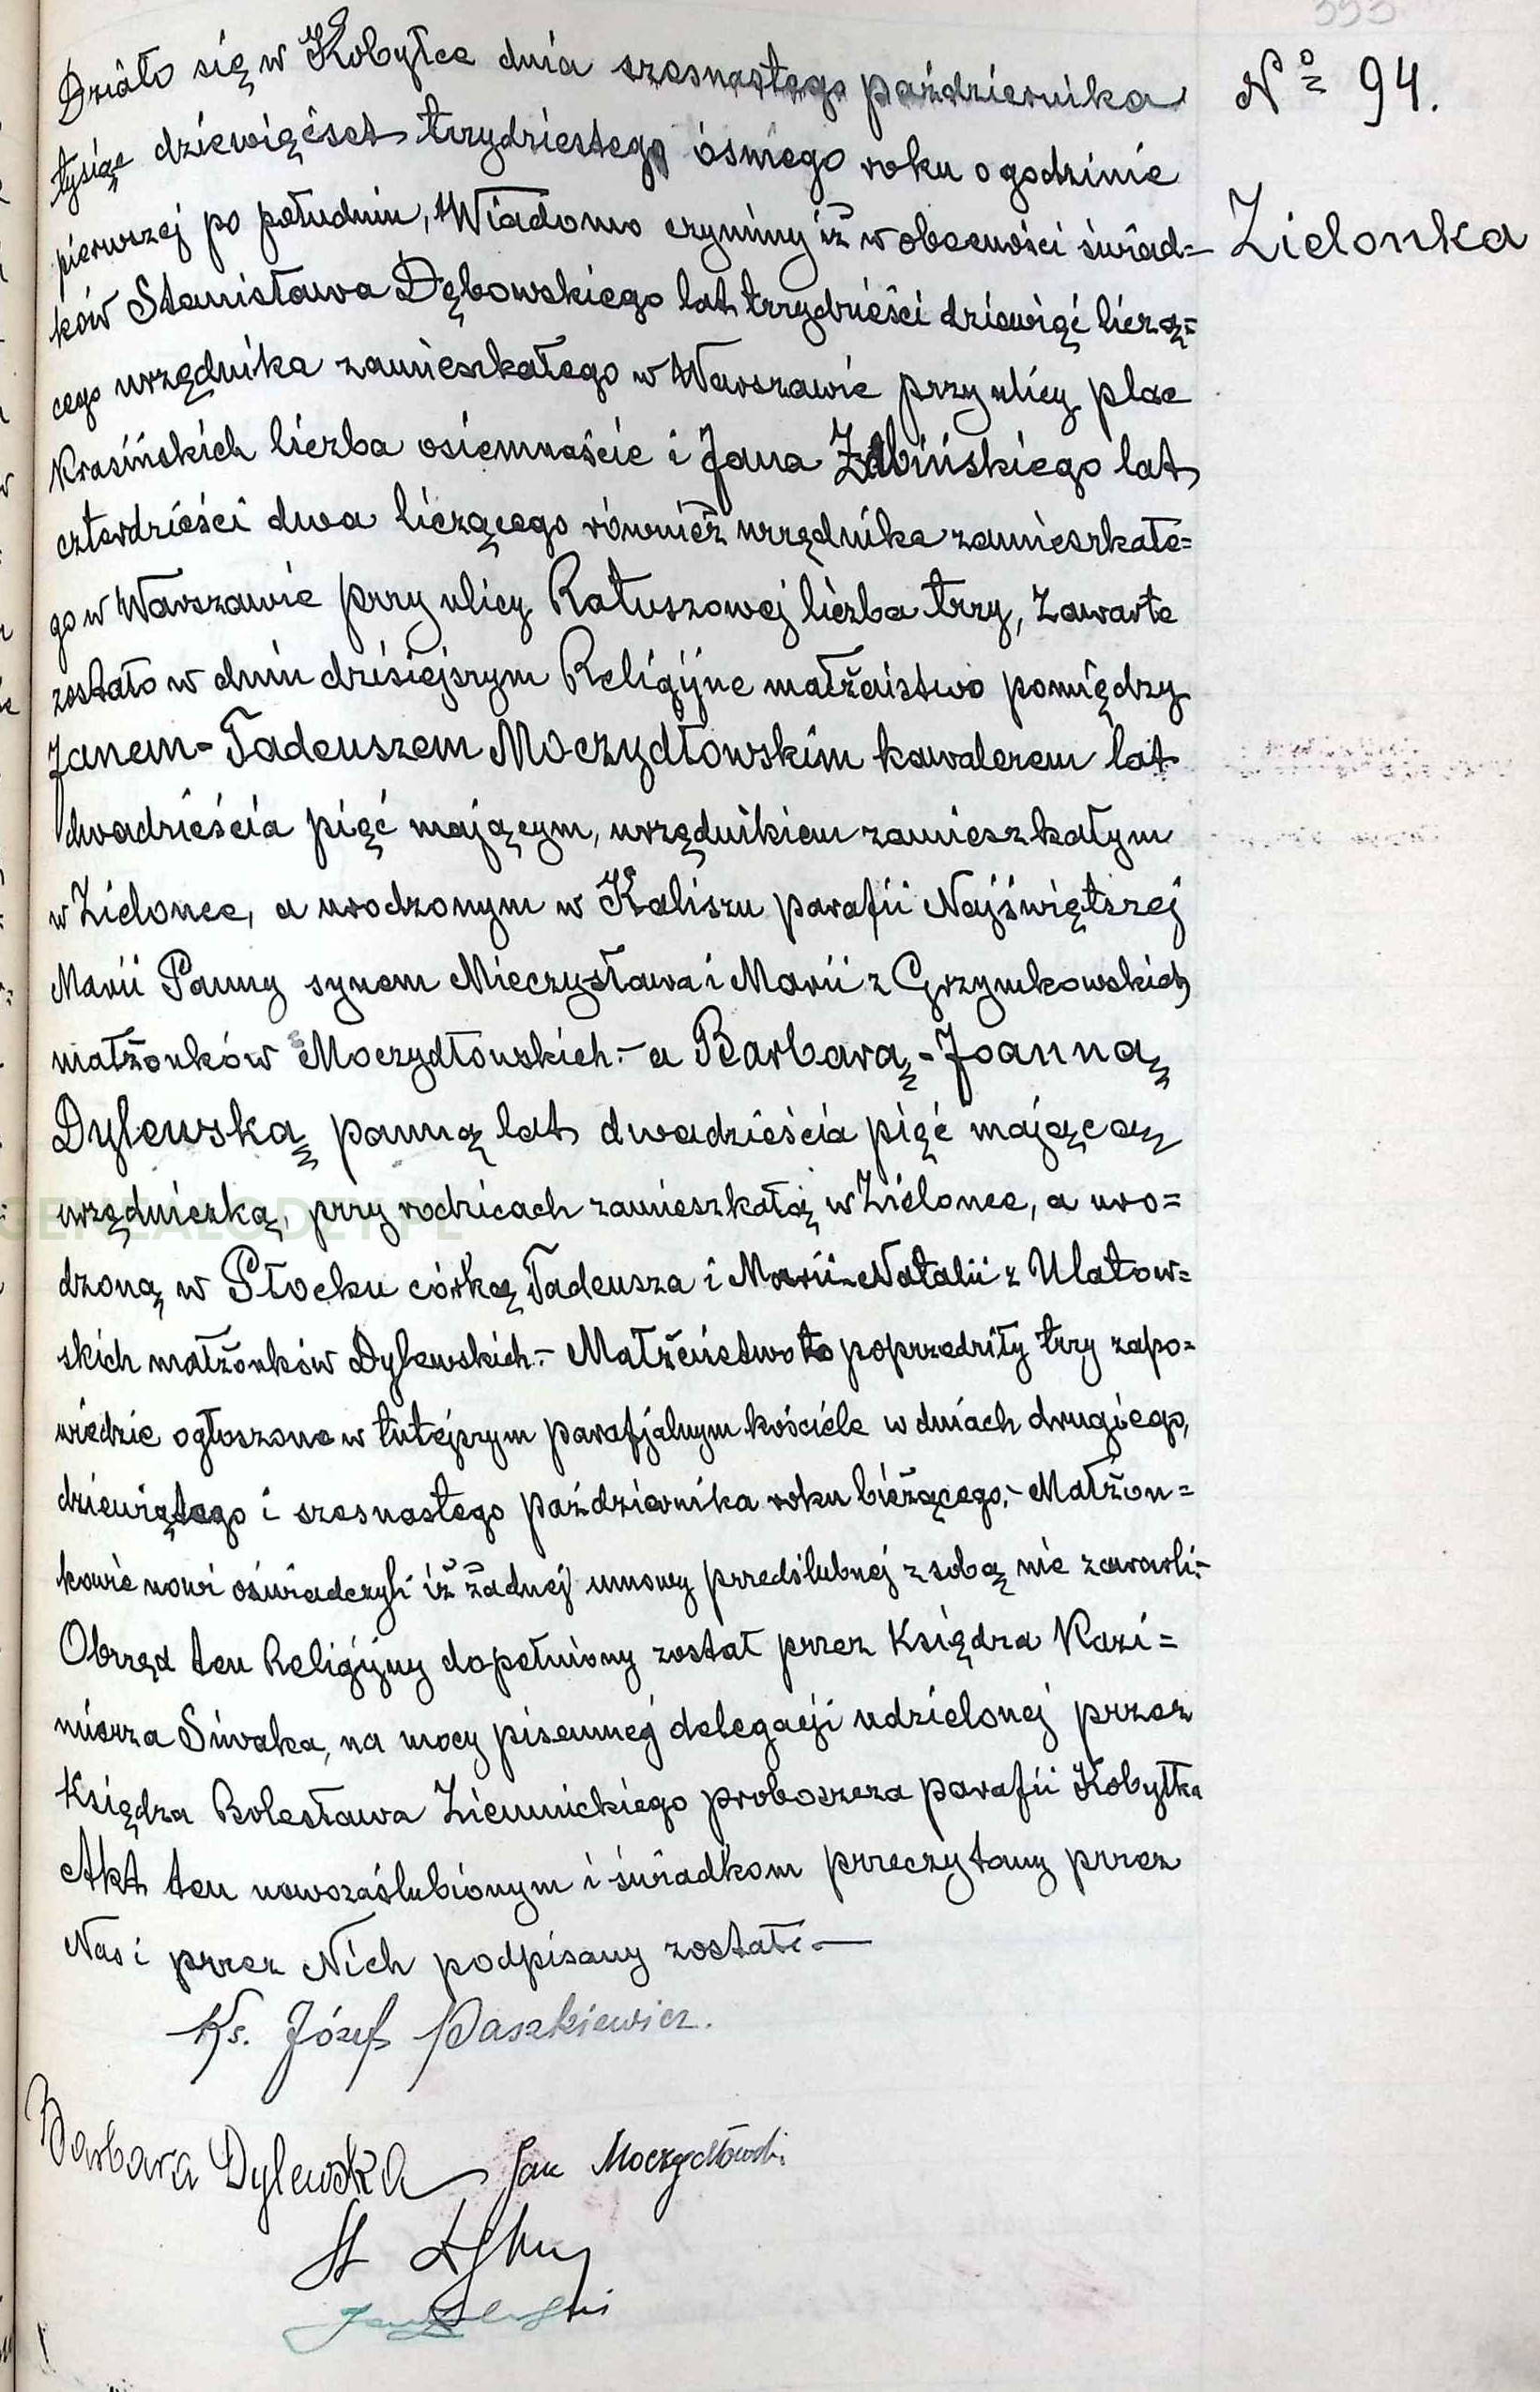 No 94.
Zielonka
Działo się w Kobyłce dnia szesnastego października
tysiąc dziewięćset trzydziestego ósmego roku o godzinie
pierwszej po południu, Wiadomo czynimy iż w obecności świad=
ków Stanisława Dębowskiego lat trzydzieści dziewięć liczą=
cego urzędnika zamieszkałego w Warszawie przy ulicy plac
Krasińskich liczba osiemnaście i Jana lat
czterdzieści dwa liczącego również urzędnika zamieszkałe=
go w Warszawie przy ulicy Ratuszowej liczba trzy, Zawarte
zostało w dniu dzisiejszym Religijne małżeństwo pomiędzy
Janem-Tadeuszem Moczydłowskim kawalerem lat
dwadzieścia pięć mającym, urzędnikiem zamieszkałym
w Zielonce, a urodzonym w Kaliszu parafii Najświętszej
Marii Panny synem Mieczysława i Marii z Grzymkowskich
małżonków Moczydłowskich.- a Barbarą-Joanną
Dylewską panną lat dwadzieścia pięć mającą
urzędniczką, przy rodzicach zamieszkałą w Zielonce, a uro=
dzoną w Płocku córką Tadeusza i Marii-Natalii z Ulatow=
skich małżonków Dylewskich.- Małżeństwo to poprzedziły trzy zapo=
wiedzie ogłoszone w tutejszym parafjalnym kościele w dniach drugiego,
dziewiątego i szesnastego października roku bieżącego.- Małżon=
kowie nowi oświadczyli iż żadnej umowy przedślubnej z sobą nie zawarli.-
Obrzęd ten Religijny dopełniony został przez Księdza Kazi=
mierza Siwaka, na mocy pisemnej delegacji udzielonej przez
Księdza Bolesława Ziemnickiego proboszcza parafii Kobyłka
Akt ten nowozaślubionym i świadkom przeczytany przez
Nas i przez Nich podpisany został.-
Ks. Józef Paszkiewicz.
Barbara Dylewska Jan Moczydłowski
St
GENEALODZY.PL